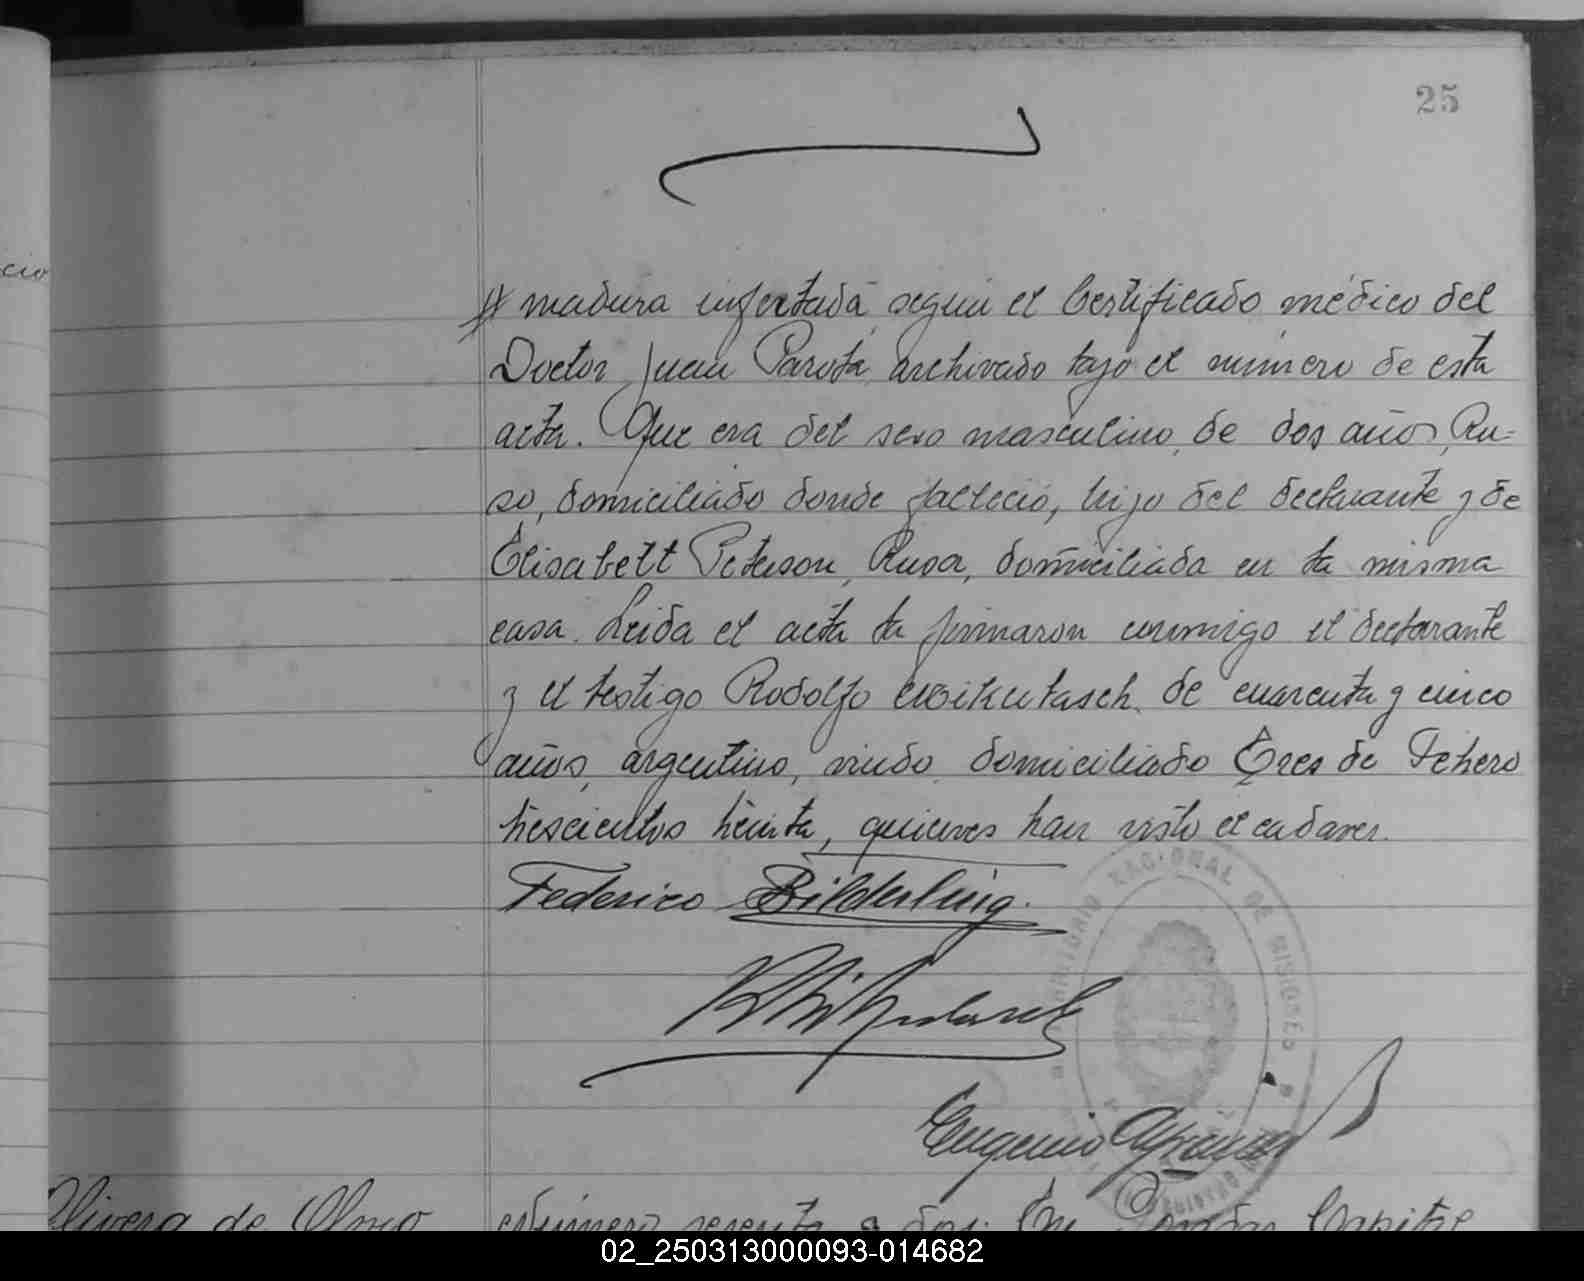 25
cio
madura infectada, según el Certificado médico del
Doctor Juan Parota, archivado bajo el número de esta
acta. Que era del sexo masculino, de dos años, Ru-
so, domiciliado donde falleció, hijo del declarante y de
Elisabett Peterson, Rusa, domiciliada en la misma
casa. Leida el acta la firmaron conmigo el declarante
y el testigo Rodolfo de cuarenta y cinco
años, argentino, viudo, domiciliado Tres de Febrero
trescientos treinta, quienes han visto el cadaver.
Federico Bilderling.
TERRITORIO NACIONAL DE MISIONES
Eugenio
Olivera de Olmo número sesenta y dos. En Posadas Capital
02_250313000093-014682